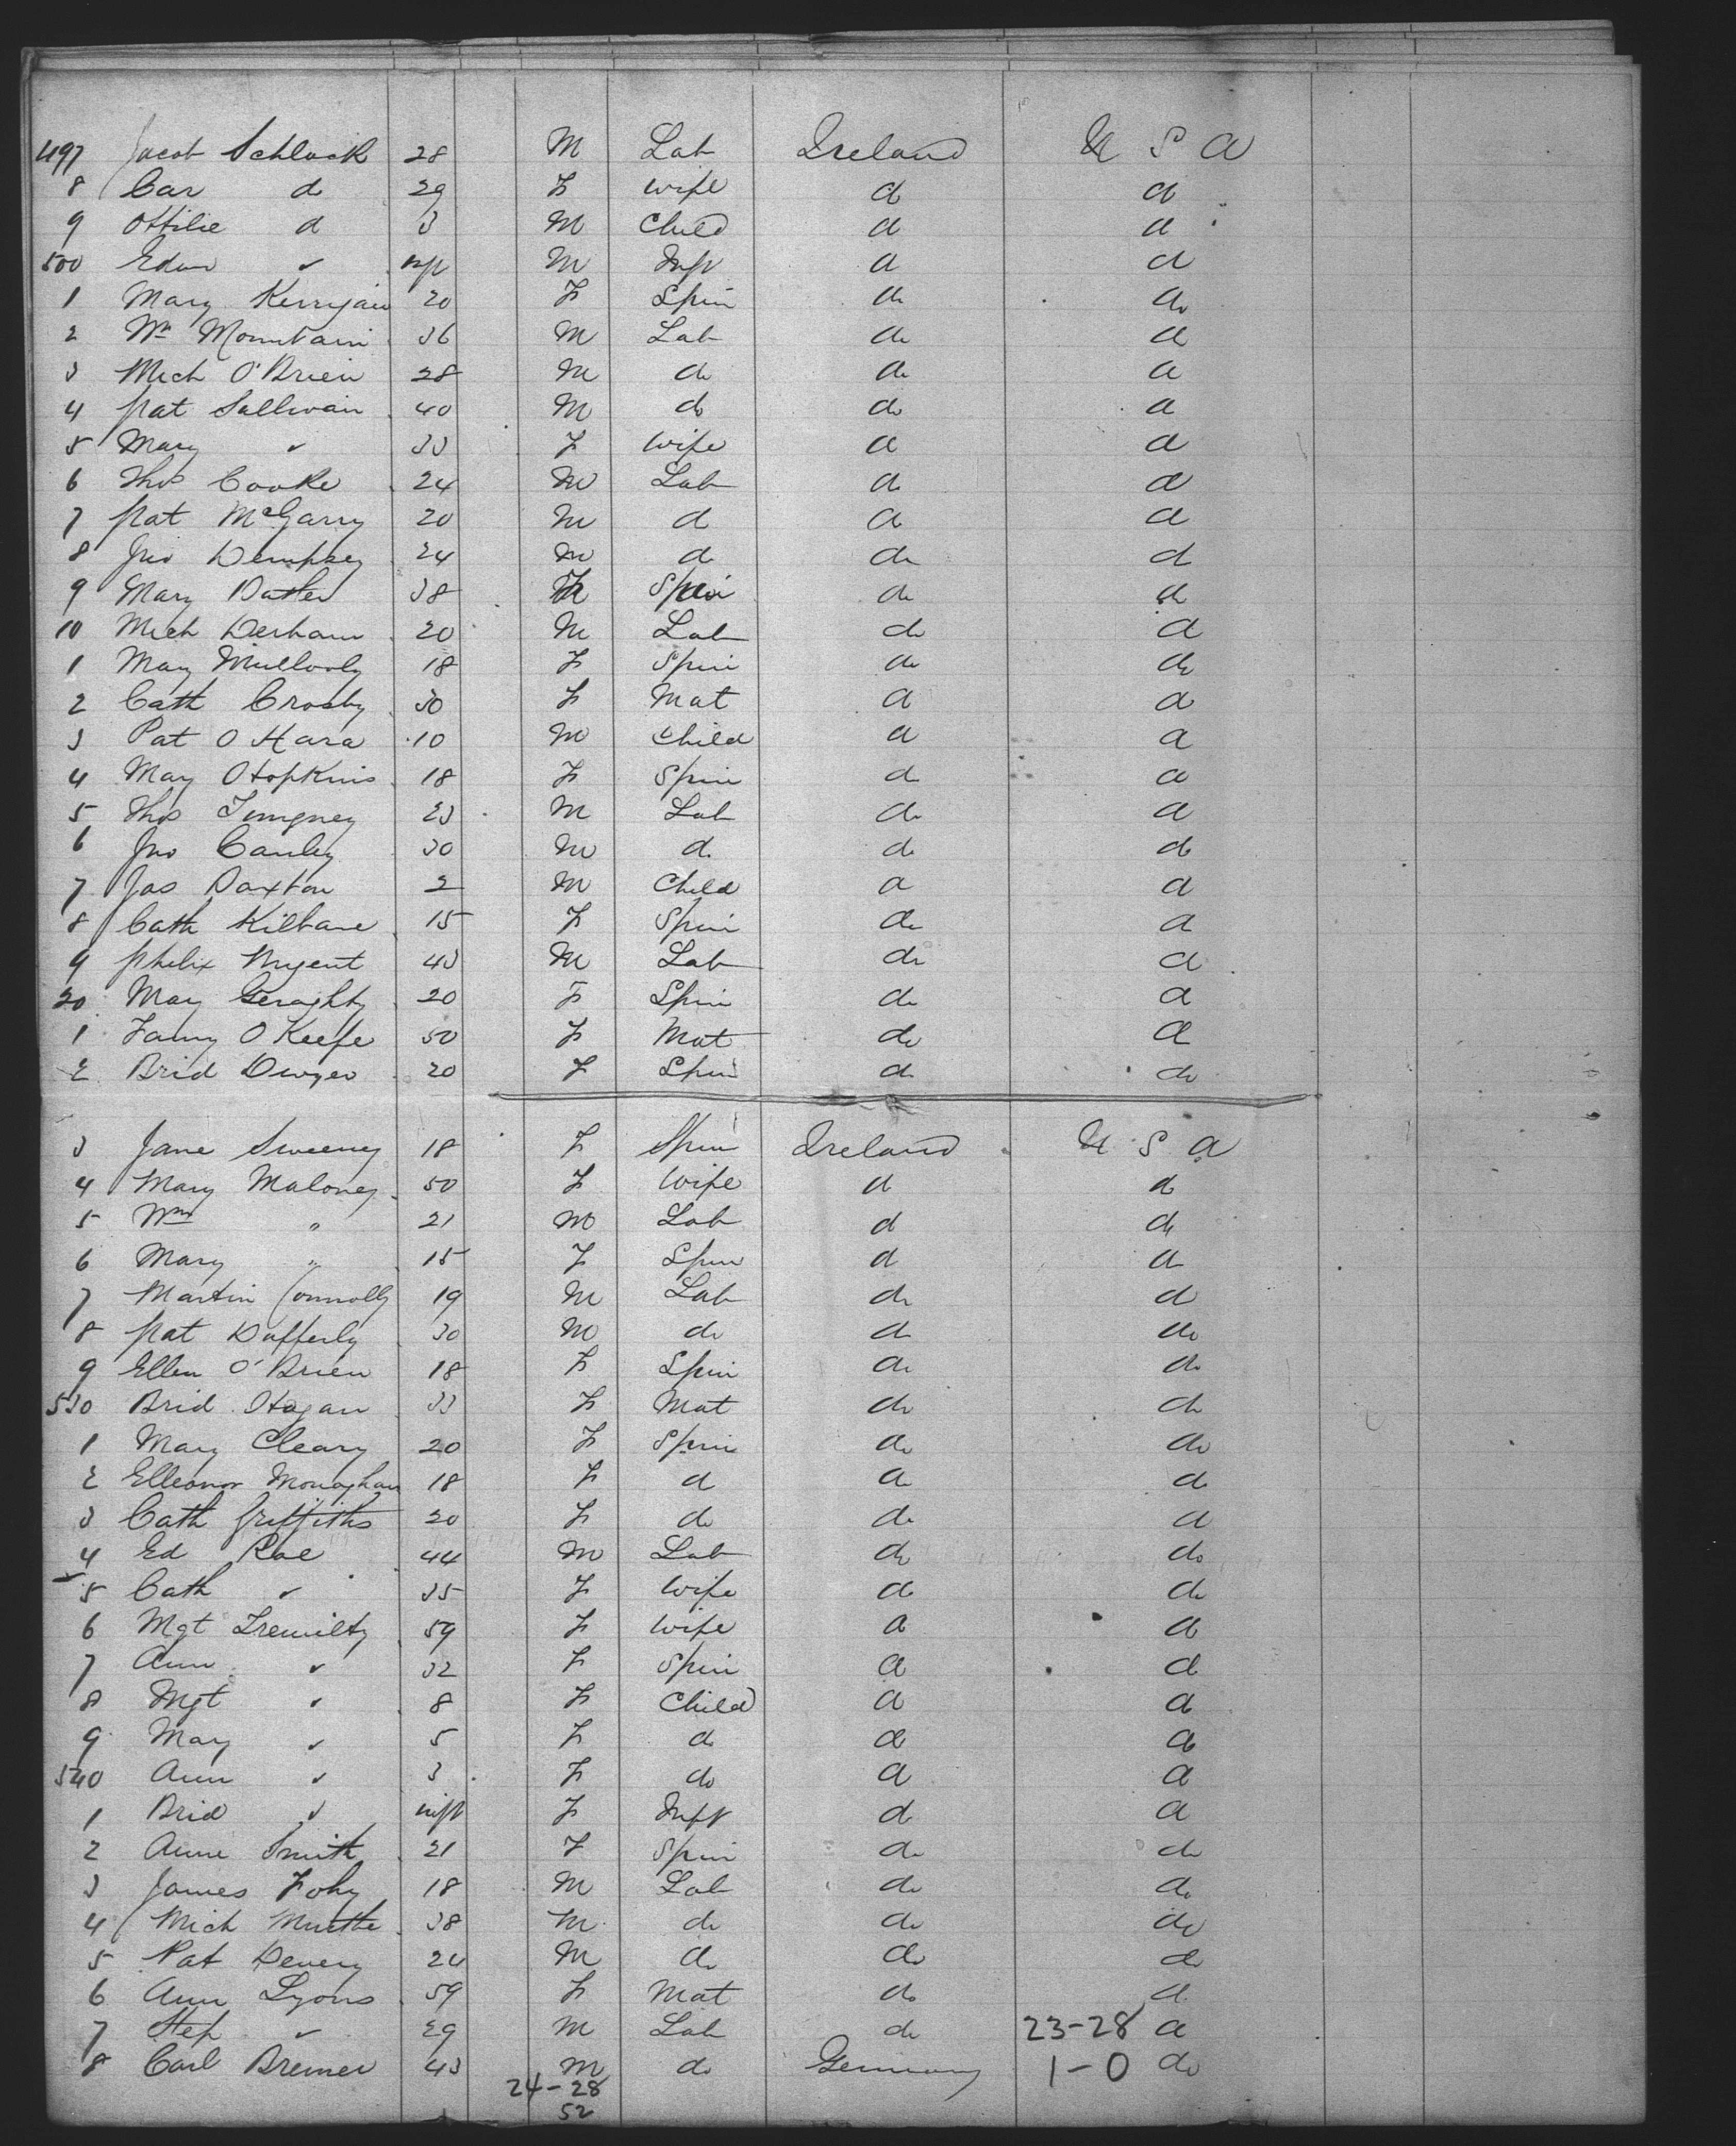 497 Jacob Schlack 28 M Lab Ireland U S A
8 Car do 29 F Wife do do
9 Ottilie d 3 M Child d d
500 Edw " inft M Inft d d
1 Mary Kerrigan 20 F Spin do do
2 Wm Mountain 36 M Lab do d
3 Mich O'Brien 28 M do do d
4 Pat Sullivan 40 M do do d
5 Mary " 33 F Wife d d
6 Thos Cooke 24 M Lab do d
7 Pat McGarry 20 M d d d
8 Jno Dempsey 24 M d do d
9 Mary Butler 38 F Spin do do
10 Mich Derham 20 M Lab do d
1 Mary Mullooly 18 F Spin do do
2 Cath Crosby 30 F Mat d d
3 Pat O Hara 10 M Child d d
4 Mary Hopkins 18 F Spin do d
5 Thos 23 M Lab do d
6 Jno Cauley 30 M d do do
7 Jas Paxton 2 M Child d d
8 Cath Kilbane 15 F Spin do d
9 Phelix Nugent 43 M Lab do d
20 Mary Geraghty 20 F Spin do d
1 Fanny O Keefe 50 F Mat do d
2 Brid Dwyer 20 F Spin d do
3 Jane Sweeney 18 F Spin Ireland U S A
4 Mary Maloney 50 F Wife d do
5 Wm " 21 M Lab d do
6 Mary " 15 F Spin d d
7 Martin Connolly 19 M Lab do d
8 Pat Dufferly 30 M do d do
9 Ellen O'Brien 18 F Spin do do
530 Brid Hogan 33 F Mat do do
1 Mary Cleary 20 F Spin do do
2 Elleonor Monaghan 18 F d d d
3 Cath Griffiths 20 F do do d
4 Ed Roe 44 M Lab do do
5 Cath " 35 F Wife do do
6 Mgt 59 F Wife d do
7 Ann " 32 F Spin d d
8 Mgt " 8 F Child d d
9 Mary " 5 F do do do
540 Ann " 3 F do d d
1 Brid " inft F Inft d d
2 Anne Smith 21 F Spin do do
3 James Fohy 18 M Lab do do
4 Mich 38 M do do do
5 Pat Devery 24 M do do do
6 Ann Lyons 59 F Mat do d
7 Step " 29 M Lab do 23-28 d
8 Carl Bremer 43 M do Germany 1-0 do
24-28
52